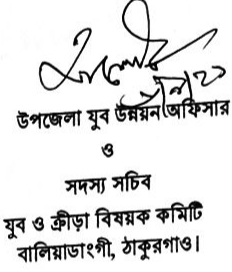 উপজেলা যুব উন্নয়ন অফিসার
ও
সদস্য সচিব
যুব ও ক্রীড়া বিষয়ক কমিটি
বালিয়াডাংগী, ঠাকুরগাও।